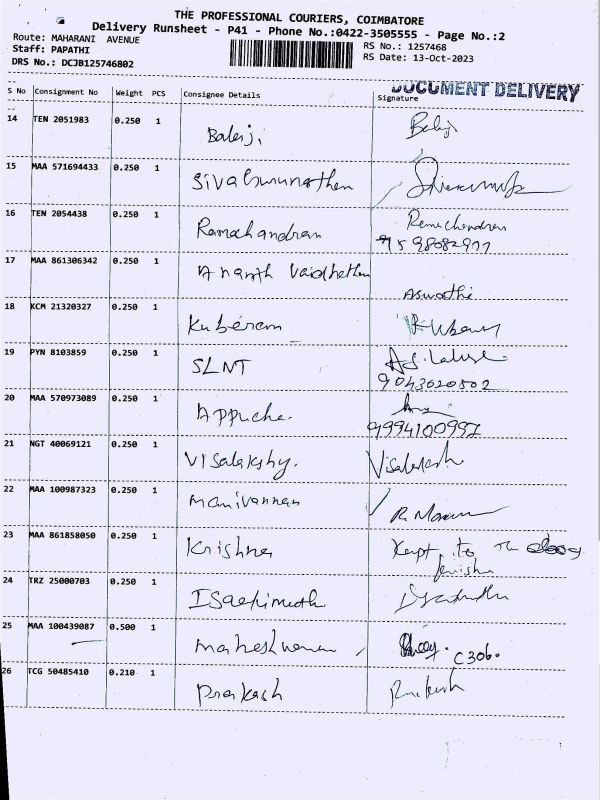 THE PROFESSIONAL COURIERS, COIMBATORE
Delivery Runsheet - P41 - Phone No.:0422-3505555 - Page No.:2
Route: MAHARANI AVENUE
RS No.: 1257468
Staff: PAPATHI
RS Date: 13-Oct-2023
DRS No.: DCJB125746802
DOCUMENT DELIVERY
S No Consignment No Weight PCS Consignee Details Signature
14 TEN 2051983 0.250 1 Balaji Balaji
15 MAA 571694433 0.250 1
16 TEN 2054438 0.250 1 Ramachandran Ramachandran
17 MAA 861306342 0.250 1 Ananth Aswathi
18 KCM 21320327 0.250 1 Kuberan
19 PYN 8103859 0.250 1 SLNT
9043620802
20 MAA 570973089 0.250 1
9994100997
21 NGT 40069121 0.250 1 Visalakshy.
22 MAA 100987323 0.250 1 Manivannan
23 MAA 861858050 0.250 1 Krishna Kept to the
24 TRZ 25000703 0.250 1
25 MAA 100439087 0.500 1 C306.
26 TCG 50485410 0.210 1 Prakash